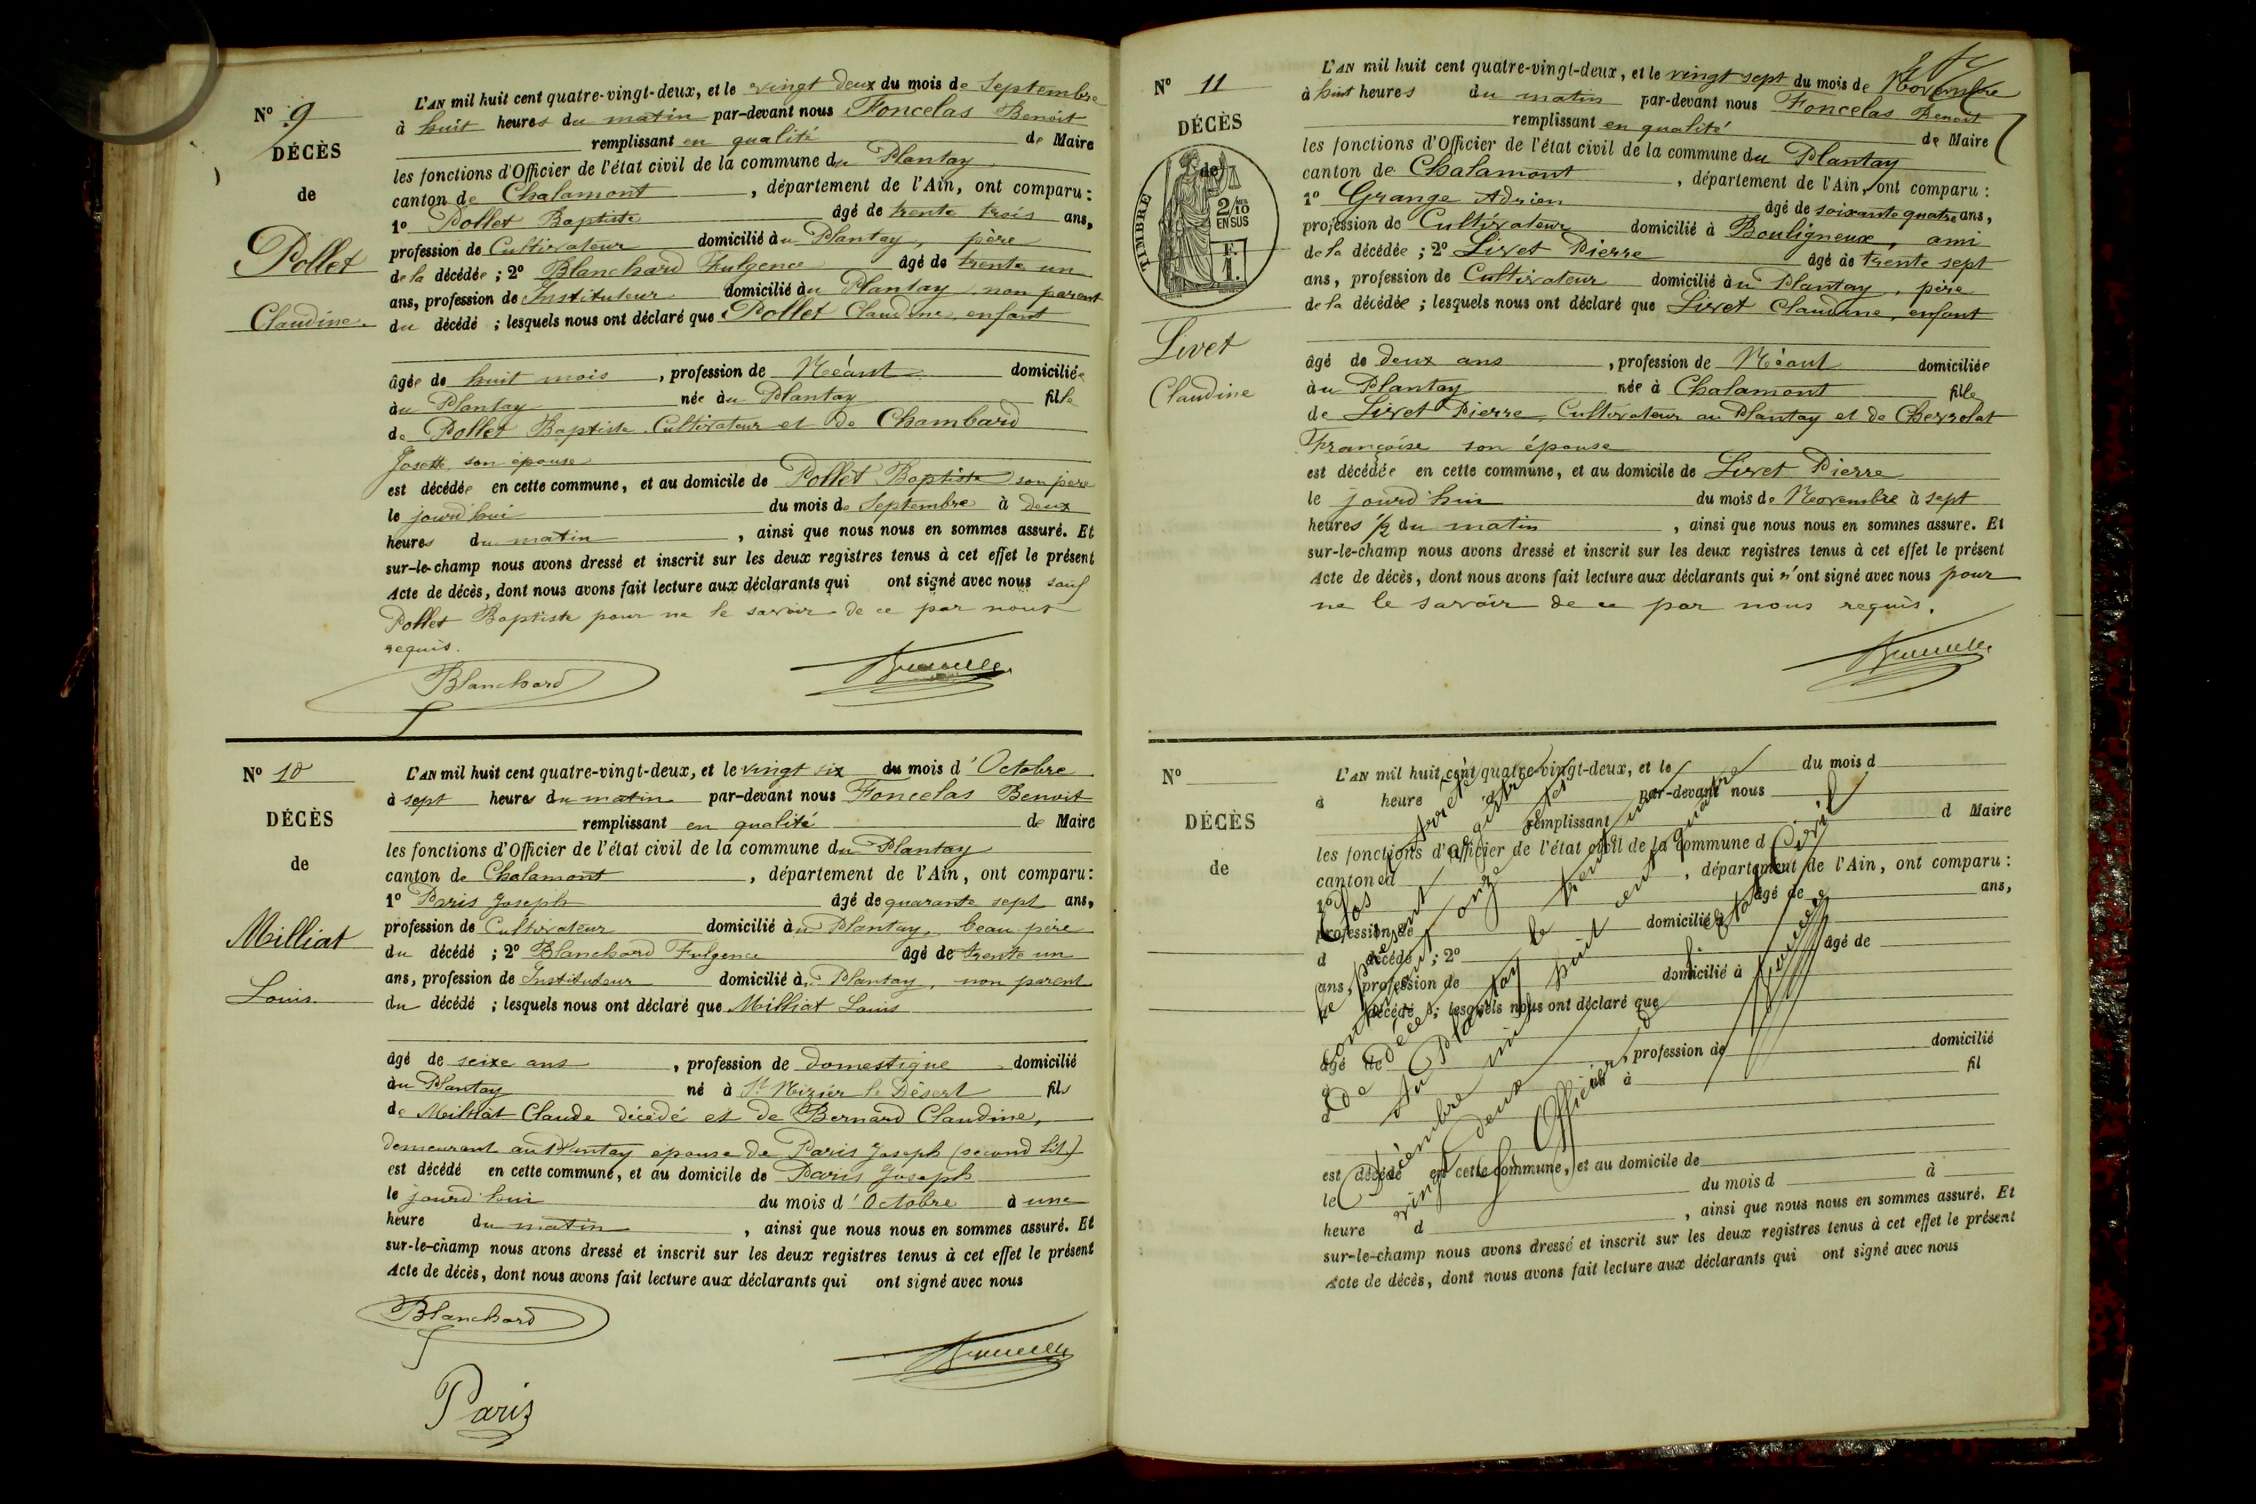 Nº 9
DÉCÈS
de
Pollet
Claudine.
L'AN mil huit cent quatre-vingt-deux, et le vingt deux du mois de Septembre
à huit heures du matin par-devant nous Foncelas Benoit
remplissant en qualité de Maire
les fonctions d'Officier de l'état civil de la commune du Plantay
canton de Chalamont, département de l'Ain, ont comparu :
1º Pollet Baptiste âgé de trente trois ans,
profession de Cultivateur domicilié au Plantay, père
de la décédée ; 2º Blanchard Fulgence âgé de trente un
ans, profession de Instituteur domicilié au Plantay non parent
du décédé ; lesquels nous ont déclaré que Pollet Claudine, enfant
âgée de huit mois, profession de Néant domiciliée
au Plantay née au Plantay fille
de Pollet Baptiste Cultivateur et de Chambard
Josette son épouse
est décédée en cette commune, et au domicile de Pollet Baptiste son père
le jourd'hui du mois de Septembre à deux
heures du matin, ainsi que nous nous en sommes assuré. Et
sur-le-champ nous avons dressé et inscrit sur les deux registres tenus à cet effet le présent
Acte de décès, dont nous avons fait lecture aux déclarants qui ont signé avec nous sauf
Pollet Baptiste pour ne le savoir de ce par nous
requis.
Blanchard
Nº 10
DÉCÈS
de
Milliat
Louis.
L'AN mil huit cent quatre-vingt-deux, et le vingt six du mois d'Octobre
à sept heures du matin par-devant nous Foncelas Benoit
remplissant en qualité de Maire
les fonctions d'Officier de l'état civil de la commune du Plantay
canton de Chalamont, département de l'Ain, ont comparu :
1º Paris Joseph âgé de quarante sept ans,
profession de Cultivateur domicilié au Plantay, beau père
du décédé ; 2º Blanchard Fulgence âgé de trente un
ans, profession de Instituteur domicilié à Plantay, non parent
du décédé ; lesquels nous ont déclaré que Milliat Louis
âgé de seize ans, profession de domestique domicilié
au Plantay né à St Nizier le Désert fils
de Milliat Claude décédé et de Bernard Claudine,
demeurant au Plantay épouse de Paris Joseph (second lit)
est décédé en cette commune, et au domicile de Paris Joseph
le jourd'hui du mois d'Octobre à une
heure du matin, ainsi que nous nous en sommes assuré. Et
sur-le-champ nous avons dressé et inscrit sur les deux registres tenus à cet effet le présent
Acte de décès, dont nous avons fait lecture aux déclarants qui ont signé avec nous
Blanchard
Paris
Nº 11
DÉCÈS
de
TIMBRE
2/10 EN SUS
Livet
Claudine
L'AN mil huit cent quatre-vingt-deux, et le vingt sept du mois de Novembre
à huit heures du matin par-devant nous Foncelas Benoit
remplissant en qualité de Maire
les fonctions d'Officier de l'état civil de la commune du Plantay
canton de Chalamont, département de l'Ain, ont comparu :
1º Grange Adrien âgé de soixante quatre ans,
profession de Cultivateur domicilié à Bouligneux, ami
de la décédée ; 2º Livet Pierre âgé de trente sept
ans, profession de Cultivateur domicilié au Plantay, père
de la décédée ; lesquels nous ont déclaré que Livet Claudine, enfant
âgé de deux ans, profession de Néant domiciliée
au Plantay née à Chalamont fille
de Livet Pierre, Cultivateur au Plantay et de Chevrolat
Françoise son épouse
est décédée en cette commune, et au domicile de Livet Pierre
le jourd'hui du mois de Novembre à sept
heures 1/2 du matin, ainsi que nous nous en sommes assuré. Et
sur-le-champ nous avons dressé et inscrit sur les deux registres tenus à cet effet le présent
Acte de décès, dont nous avons fait lecture aux déclarants qui n'ont signé avec nous pour
ne le savoir de ce par nous requis.
Nº
DÉCÈS
de
L'AN mil huit cent quatre-vingt-deux, et le du mois d
à heure par-devant nous
remplissant d Maire
les fonctions d'Officier de l'état civil de la commune d
canton d, département de l'Ain, ont comparu :
1º âgé de ans,
profession de domicilié à
d décédé ; 2º âgé de
ans, profession de domicilié à
décédé ; lesquels nous ont déclaré que
âgé de, profession de domicilié
à né à fil
d
est décédé en cette commune, et au domicile de
le du mois d à
heure d, ainsi que nous nous en sommes assuré. Et
sur-le-champ nous avons dressé et inscrit sur les deux registres tenus à cet effet le présent
Acte de décès, dont nous avons fait lecture aux déclarants qui ont signé avec nous
Clos et arrêté
le présent registre
contenant onze actes
de décès
Au Plantay le trente un
Décembre mil huit cent quatre
vingt deux
L'Officier de l'état Civil